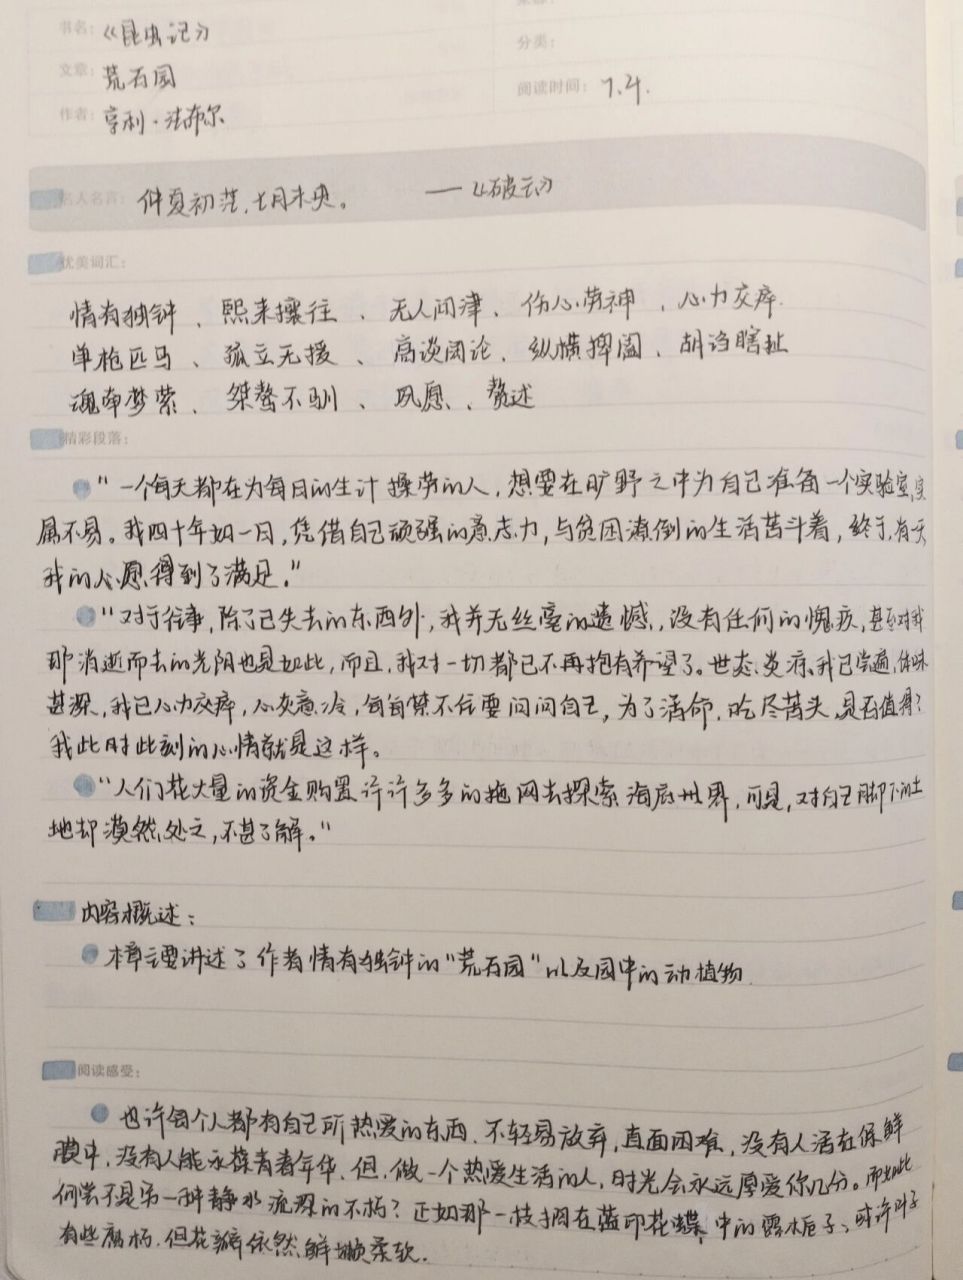 书名：《昆虫记》
分类：
文章：荒石园
阅读时间：7.4.
作者：亨利·法布尔
名人名言：仲夏初茫，七月未央。 ——《破云》
优美词汇：
情有独钟、熙来攘往、无人问津、伤心劳神、心力交瘁.
单枪匹马、孤立无援、高谈阔论、纵横捭阖、胡诌瞎扯
魂牵梦萦、桀骜不驯、夙愿、赘述
精彩段落：
"一个每天都在为每日的生计操劳的人，想要在旷野之中为自己准备一个实验室，实
属不易。我四十年如一日，凭借自己顽强的意志力，与贫困潦倒的生活苦斗着，终于，有一天
我的心愿得到了满足。"
"对于往事，除了已失去的东西外，我并无丝毫的遗憾，没有任何的愧疚，甚至对我
那消逝而去的光阴也是如此，而且，我对一切都已不再抱有希望了。世态炎凉，我已尝遍，体味
甚深，我已心力交瘁，心灰意冷，每每禁不住要问问自己，为了活命，吃尽苦头，是否值得？
我此时此刻的心情就是这样。
"人们花大量的资金购置许许多多的拖网去探索海底世界，可是，对自己脚下的土
地却漠然处之，不甚了解。"
内容概述：
本章主要讲述了作者情有独钟的"荒石园"以及园中的动植物.
阅读感受：
也许每个人都有自己所热爱的东西，不轻易放弃，直面困难，没有人活在保鲜
膜中，没有人能永葆青春年华，但，做一个热爱生活的人，时光会永远厚爱你几分。而如此
何尝不是另一种静水流深的不朽？正如那一枝搁在蓝印花蝶中的露栀子，或许叶子
有些腐朽，但花瓣依然鲜嫩柔软.